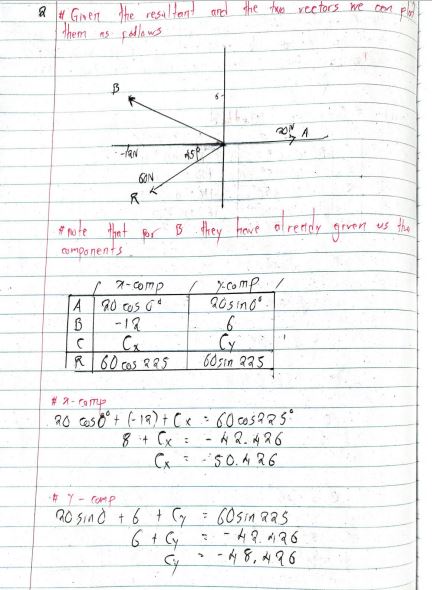 2 # Given the resultant and the two vectors we can plot
them as follows
B
5
20N A
-12N
45°
60N
R
# note that for B they have already given us the
components
x-comp y-comp
A 20 cos 0° 20 sin 0°
B -12 6
C Cx Cy
R 60 cos 225 60 sin 225
# x-comp
20 cos 0° + (-12) + Cx = 60 cos 225°
8 + Cx = - 42.426
Cx = - 50.426
# y - comp
20 sin 0 + 6 + Cy = 60 sin 225
6 + Cy = - 42.426
Cy = - 48.426